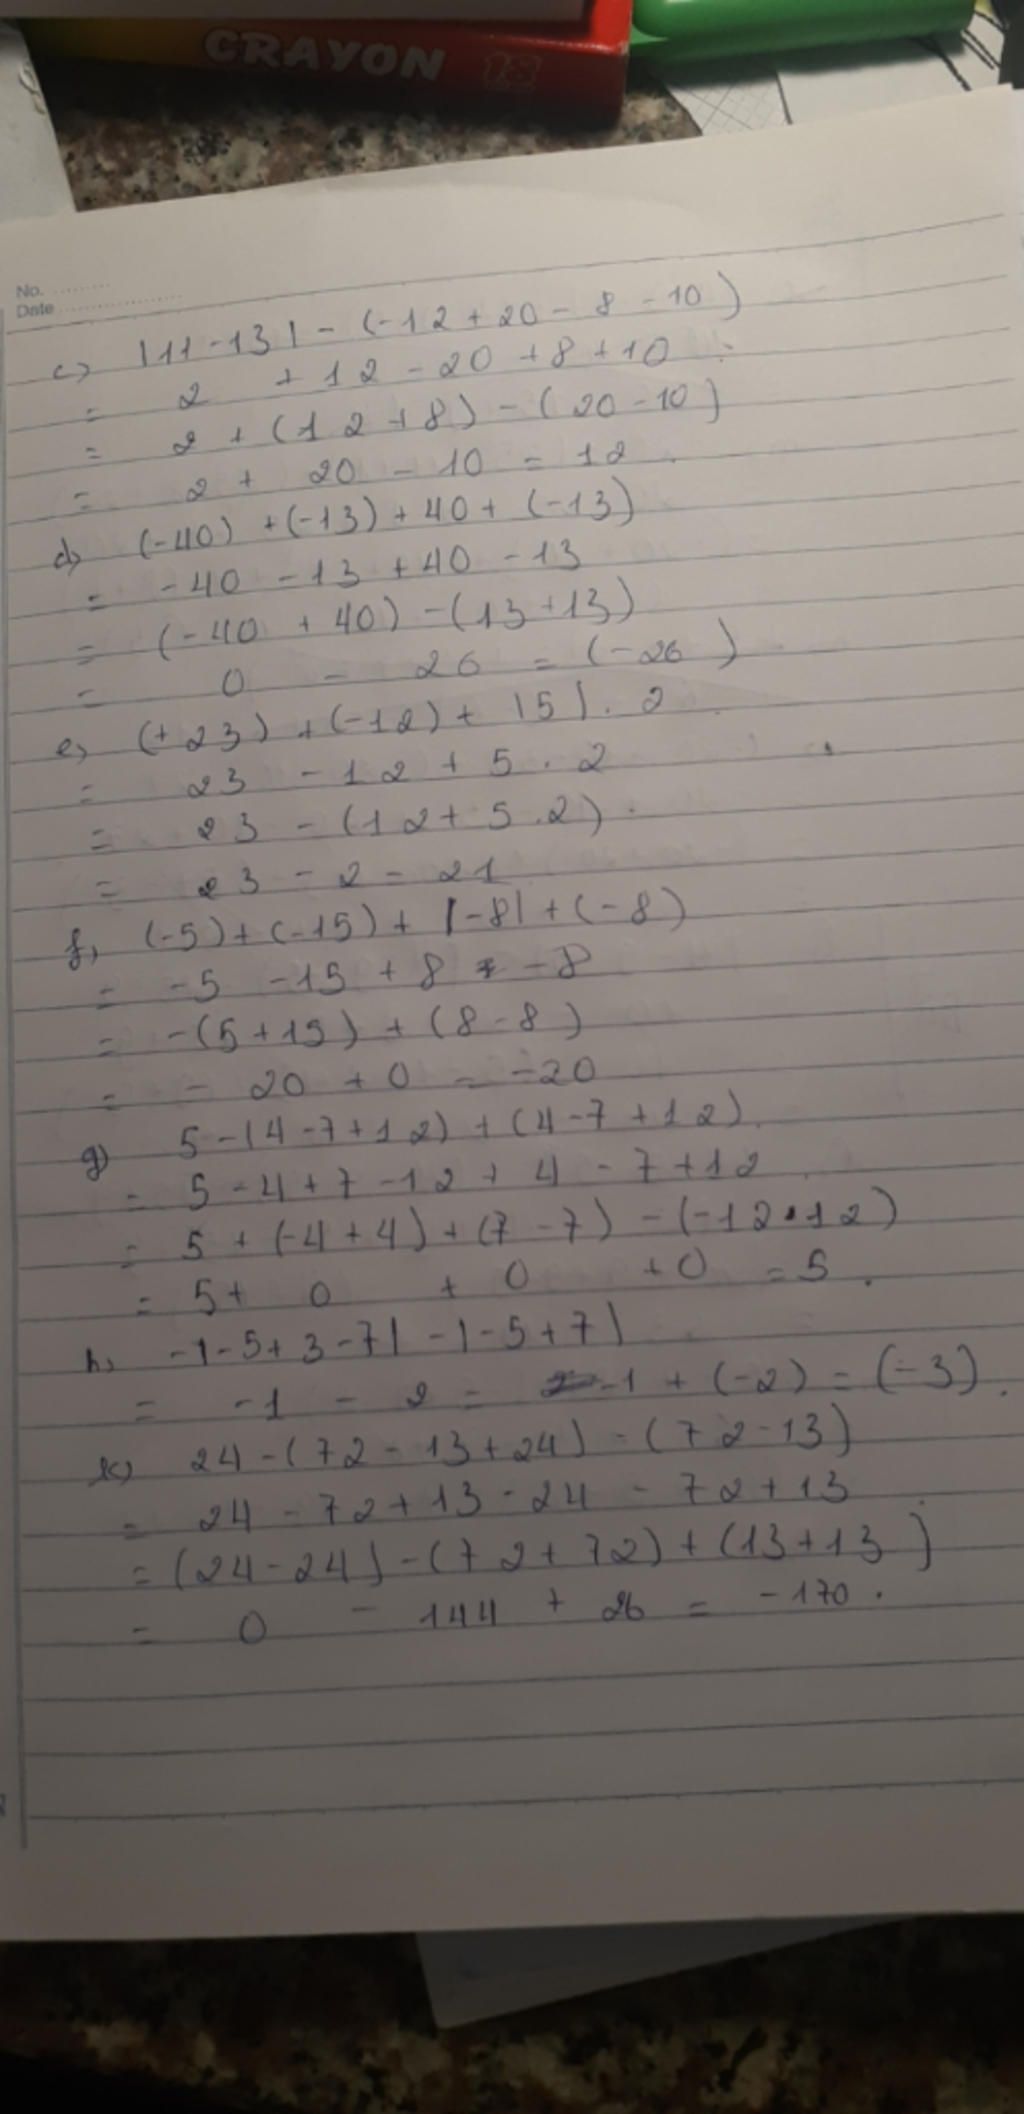 CRAYON 18
No. ..........
Date ....................
c) |11-13| - (-12 + 20 - 8 - 10)
= 2 + 12 - 20 + 8 + 10
= 2 + (12 + 8) - (20 - 10)
= 2 + 20 - 10 = 12.
d, (-40) + (-13) + 40 + (-13)
= -40 - 13 + 40 - 13
= (-40 + 40) - (13 + 13)
= 0 - 26 = (-26)
e, (+23) + (-12) + |5| . 2
= 23 - 12 + 5 . 2
= 23 - (12 + 5 . 2).
= 23 - 2 = 21
f, (-5) + (-15) + |-8| + (-8)
= -5 - 15 + 8 - 8
= -(5 + 15) + (8 - 8)
= - 20 + 0 = -20
g) 5 - (4 - 7 + 12) + (4 - 7 + 12).
= 5 - 4 + 7 - 12 + 4 - 7 + 12
= 5 + (-4 + 4) + (7 - 7) - (-12 + 12)
= 5 + 0 + 0 + 0 = 5.
h, -|-5 + 3 - 7| - |-5 + 7|
= -1 - 2 = -1 + (-2) = (-3).
k) 24 - (72 - 13 + 24) - (72 - 13)
= 24 - 72 + 13 - 24 - 72 + 13
= (24 - 24) - (72 + 72) + (13 + 13)
= 0 - 144 + 26 = -170.